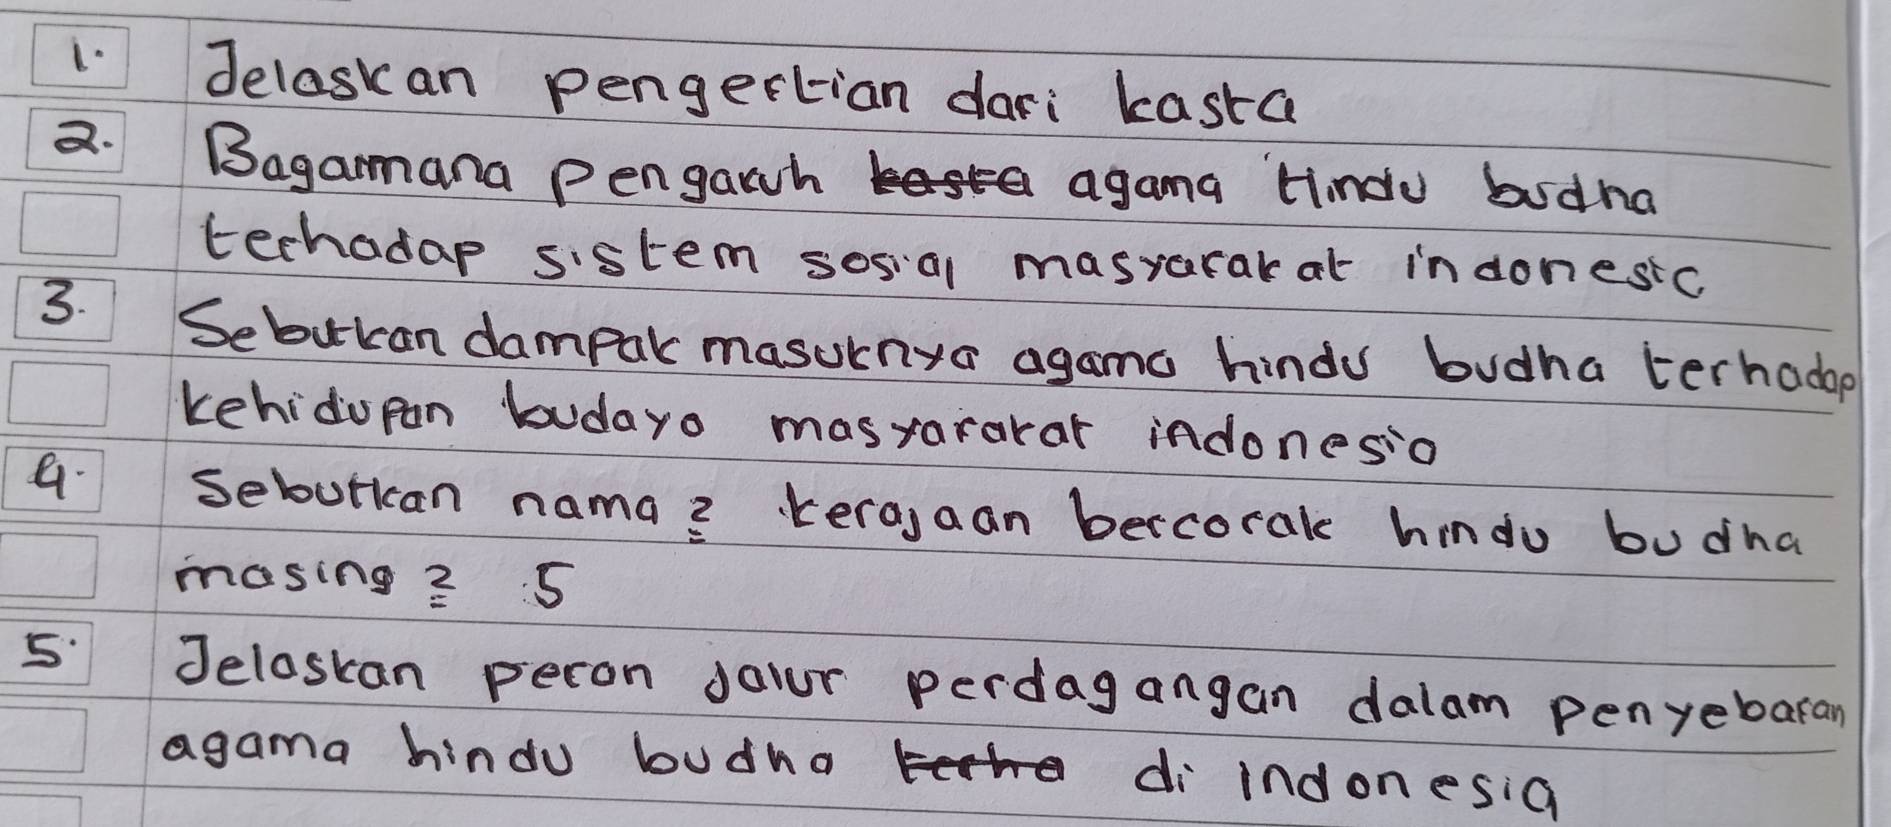 1. Jelaskan pengertian dari kasta
2. Bagaimana pengaruh kasta agama Hindu budha
terhadap sistem sosial masyarakat indonesia
3. Sebutkan dampak masuknya agama hindu budha terhadap
kehidupan budaya masyarakat indonesia
4. Sebutkan nama2 kerajaan bercorak hindu budha
masing2 5
5. Jelaskan peran jalur perdagangan dalam penyebaran
agama hindu budha terha di indonesia